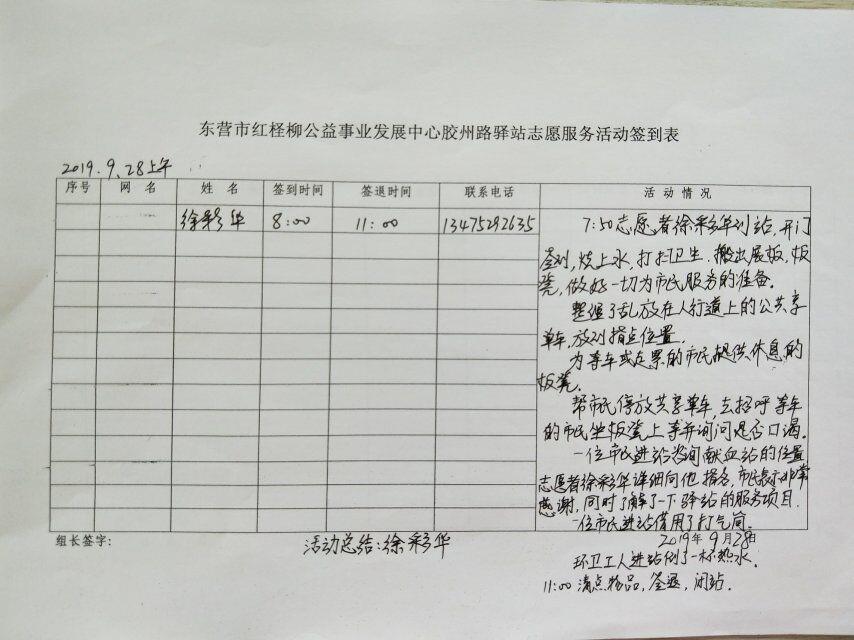 东营市红柽柳公益事业发展中心胶州路驿站志愿服务活动签到表
2019.9.28上午
序号 网 名 姓 名 签到时间 签退时间 联系电话 活 动 情 况
徐彩华 8:00 11:00 13475292635
7:50志愿者徐彩华到站,开门
签到,烧上水,打扫卫生.搬出展板,板
凳,做好一切为市民服务的准备.
整理了乱放在人行道上的公共享
单车,放到指点位置.
为等车或走累的市民提供休息的
板凳.
帮市民停放共享单车,去招呼等车
的市民坐板凳上等并询问是否口渴.
一位市民进站咨询献血站的位置
志愿者徐彩华详细向他指名,市民表示非常
感谢,同时了解了一下驿站的服务项目.
一位市民进站借用了打气筒.
组长签字: 活动总结:徐彩华 2019年9月28日
环卫工人进站倒了一杯热水.
11:00清点物品,签退,闭站.